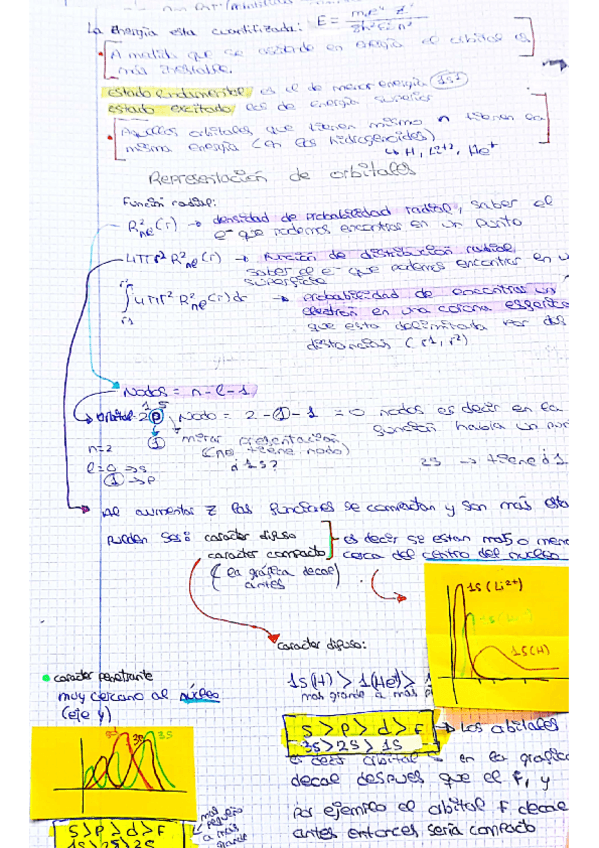 La energía esta cuantificada: E =
A medida que se asciende en energía el orbital es
más inestable.
estado fundamental es el de menor energía (1s1)
estado excitado los de energía superior
Aquellos orbitales que tienen mismo n tienen la
misma energía (en los hidrogenoides)
↳ H, Li2+, He+
Representación de orbitales
Función radial:
R²nl(r) → densidad de probabilidad radial, saber el
e- que podemos encontrar en un punto
4πr² R²nl(r) → función de distribución radial,
saber el e- que podemos encontrar en
superficie
∫ r2 r1 4πr² R²nl(r)dr → probabilidad de encontrar un
electrón en una corona esférica
que esta delimitada por dos
distancias (r1, r2)
Nodos = n-l-1
orbital 2p Nodo = 2-1-1 = 0 nodos es decir en la
función habia un
mirar presentación
(no tiene nodo)
n=2
l=0→s
1→p
d 1s?
2s → tiene d 1
Al aumentar Z las funciones se compactan y son más
pueden ser: caracter difuso
caracter compacto
es decir se estan mas o
cerca del centro del nucleo
(la gráfica decae
antes)
1s (Li2+)
1s(H)
caracter difuso:
caracter penetrante
muy cercano al núcleo
(eje y)
1s(H) > 1(He+) >
mas grande a mas
s > p > d > f
3s > 2s > 1s
→ Los orbitales
es decir orbital s en la grafica
decae despues que el f, y
por ejemplo el orbital f decae
antes entonces seria compacto
3s
s > p > d > f
mas
pequeño
a mas
grande